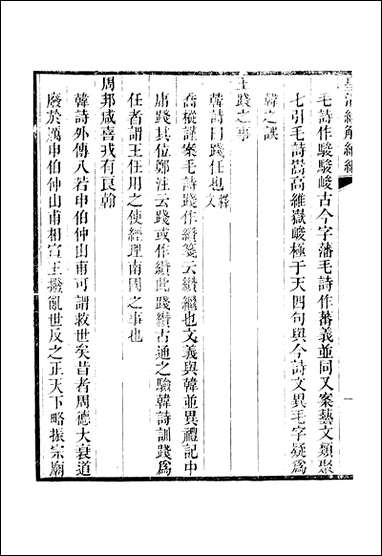 皇清經解續編
毛詩作駿駿峻古今字藩毛詩作蕃義並同又案藝文類聚
七引毛詩嵩高維嶽峻極于天四句與今詩文異毛字疑爲
韓之誤
王踐之事
韓詩曰踐任也釋文
喬樅謹案毛詩踐作纘箋云纘繼也文義與韓並異禮記中
庸踐其位鄭注云踐或作纘此踐纘古通之驗韓詩訓踐爲
任者謂王任用之使經理南國之事也
周邦咸喜戎有良翰
韓詩外傳八若申伯仲山甫可謂救世矣昔者周德大衰道
廢於厲申伯仲山甫相宣王撥亂世反之正天下略振宗廟